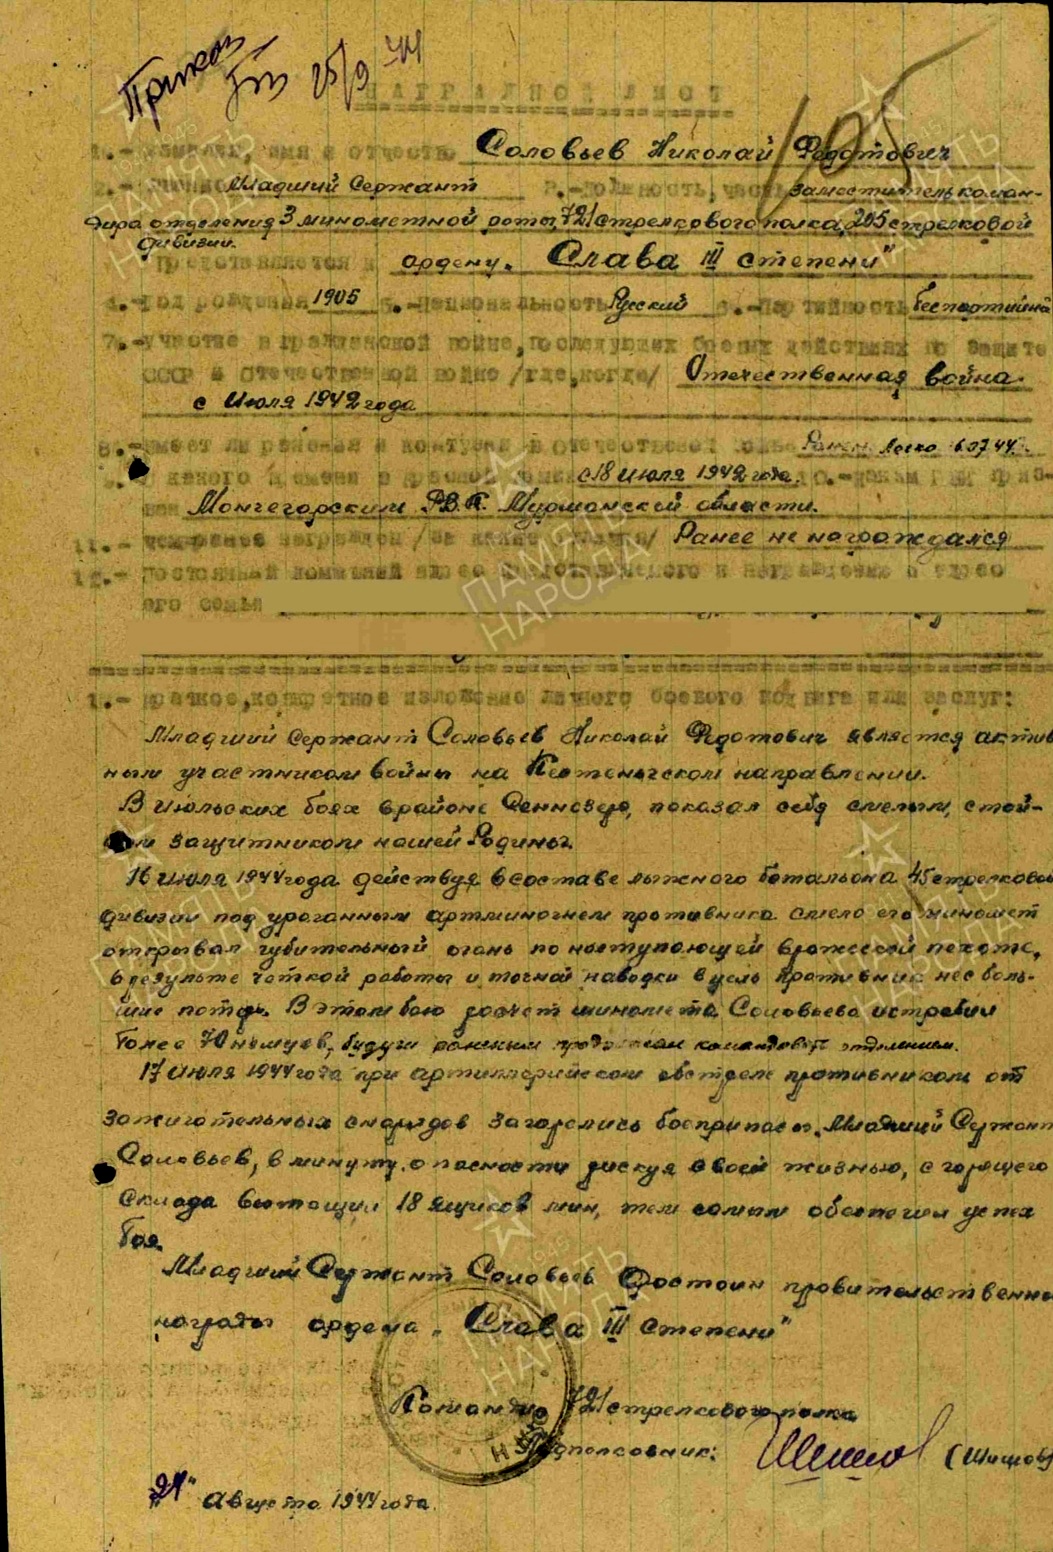 Приказ
25/9 44
105
НАГРАДНОЙ ЛИСТ
1.- Фамилия, имя и отчество Соловьев Николай Федотович
2.- Звание Младший Сержант 3.- Должность, часть заместитель коман-
дира отделения 3 минометной роты, 721 стрелкового полка, 205 стрелковой
дивизии.
Представляется к ордену "Слава III степени"
4.- Год рождения 1905 5.- Национальность Русский 6.- Партийность беспартийный
7.- Участие в гражданской войне, последующих боевых действиях по защите
СССР и Отечественной войне /где, когда/ Отечественная война
с июля 1942 года
8.- Имеет ли ранения и контузии в Отечественной войне Ранен легко 16.07.44
9.- С какого времени в Красной Армии с 18 июля 1942 года. 10.- Каким РВК приз-
ван Мончегорским РВК Мурманской области.
11.- Чем ранее награжден /за какие отличия/ Ранее не награждался
12.- Постоянный домашний адрес представляемого к награждению и адрес
его семьи
1.- Краткое, конкретное изложение личного боевого подвига или заслуг:
Младший Сержант Соловьев Николай Федотович является актив
ным участником войны на Кестеньгском направлении.
В июльских боях в районе показал себя смелым, стой-
ким защитником нашей Родины.
16 июля 1944 года действуя в составе лыжного батальона 45 стрелковой
дивизии под ураганным артминогнем противника смело его миномет
открывал губительный огонь по наступающей вражеской пехоте,
в результе четкой работы и точной наводки в цель противник нес боль-
шие потери. В этом бою расчет миномета Соловьева истребил
более 70 немцев, будучи раненым командовать отделением.
17 июля 1944 года при артиллерийском обстреле противником от
зажигательных снарядов загорелись боеприпасы. Младший Сержант
Соловьев, в минуту опасности рискуя своей жизнью, с горящего
склада вытащил 18 ящиков мин, тем самым обеспечил успех
боя.
Младший Сержант Соловьев достоин правительственной
награды ордена "Слава III степени"
Командир 721 стрелкового полка
Подполковник: (Шишов)
"24" августа 1944 года.
ПАМЯТЬ
НАРОДА